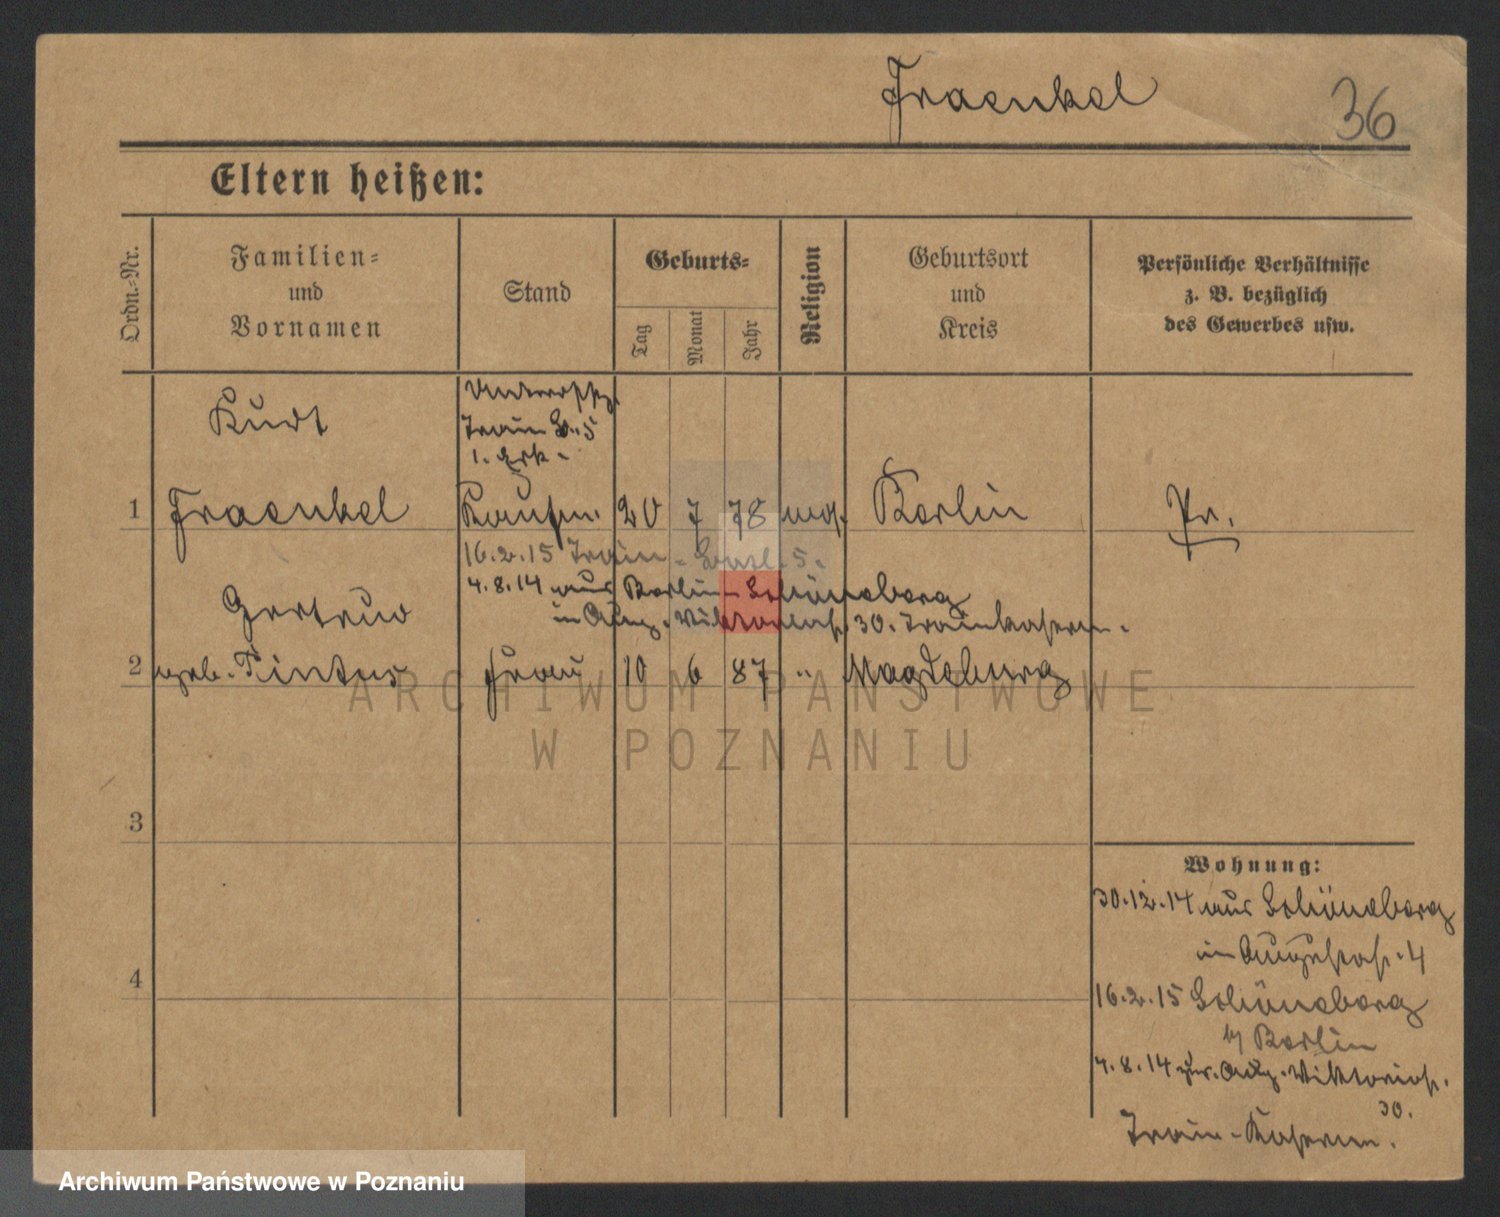 Fraenkel
36
Eltern heißen:
Ordn.-Nr.
Familien-
und
Vornamen
Stand
Geburts-
Tag
Monat
Jahr
Religion
Geburtsort
und
Kreis
Persönliche Verhältnisse
z. B. bezüglich
des Gewerbes usw.
Kurt
Train 5
1.
1 Fraenkel Kaufm. 20 7 78 mos. Berlin Pr.
16.2.15 Train- 5.
4.8.14 aus Berlin-Schöneberg
in 30. Trainkaserne.
Gertrud
2 geb. Pintus Frau 10 6 87 " Magdeburg
3
4
Wohnung:
30.12.14 aus Schöneberg
in Augustastr. 4
16.2.15 Schöneberg
b/ Berlin
4.8.14 Aug. Viktoriastr.
30.
Train-Kaserne.
ARCHIWUM PAŃSTWOWE
W POZNANIU
Archiwum Państwowe w Poznaniu